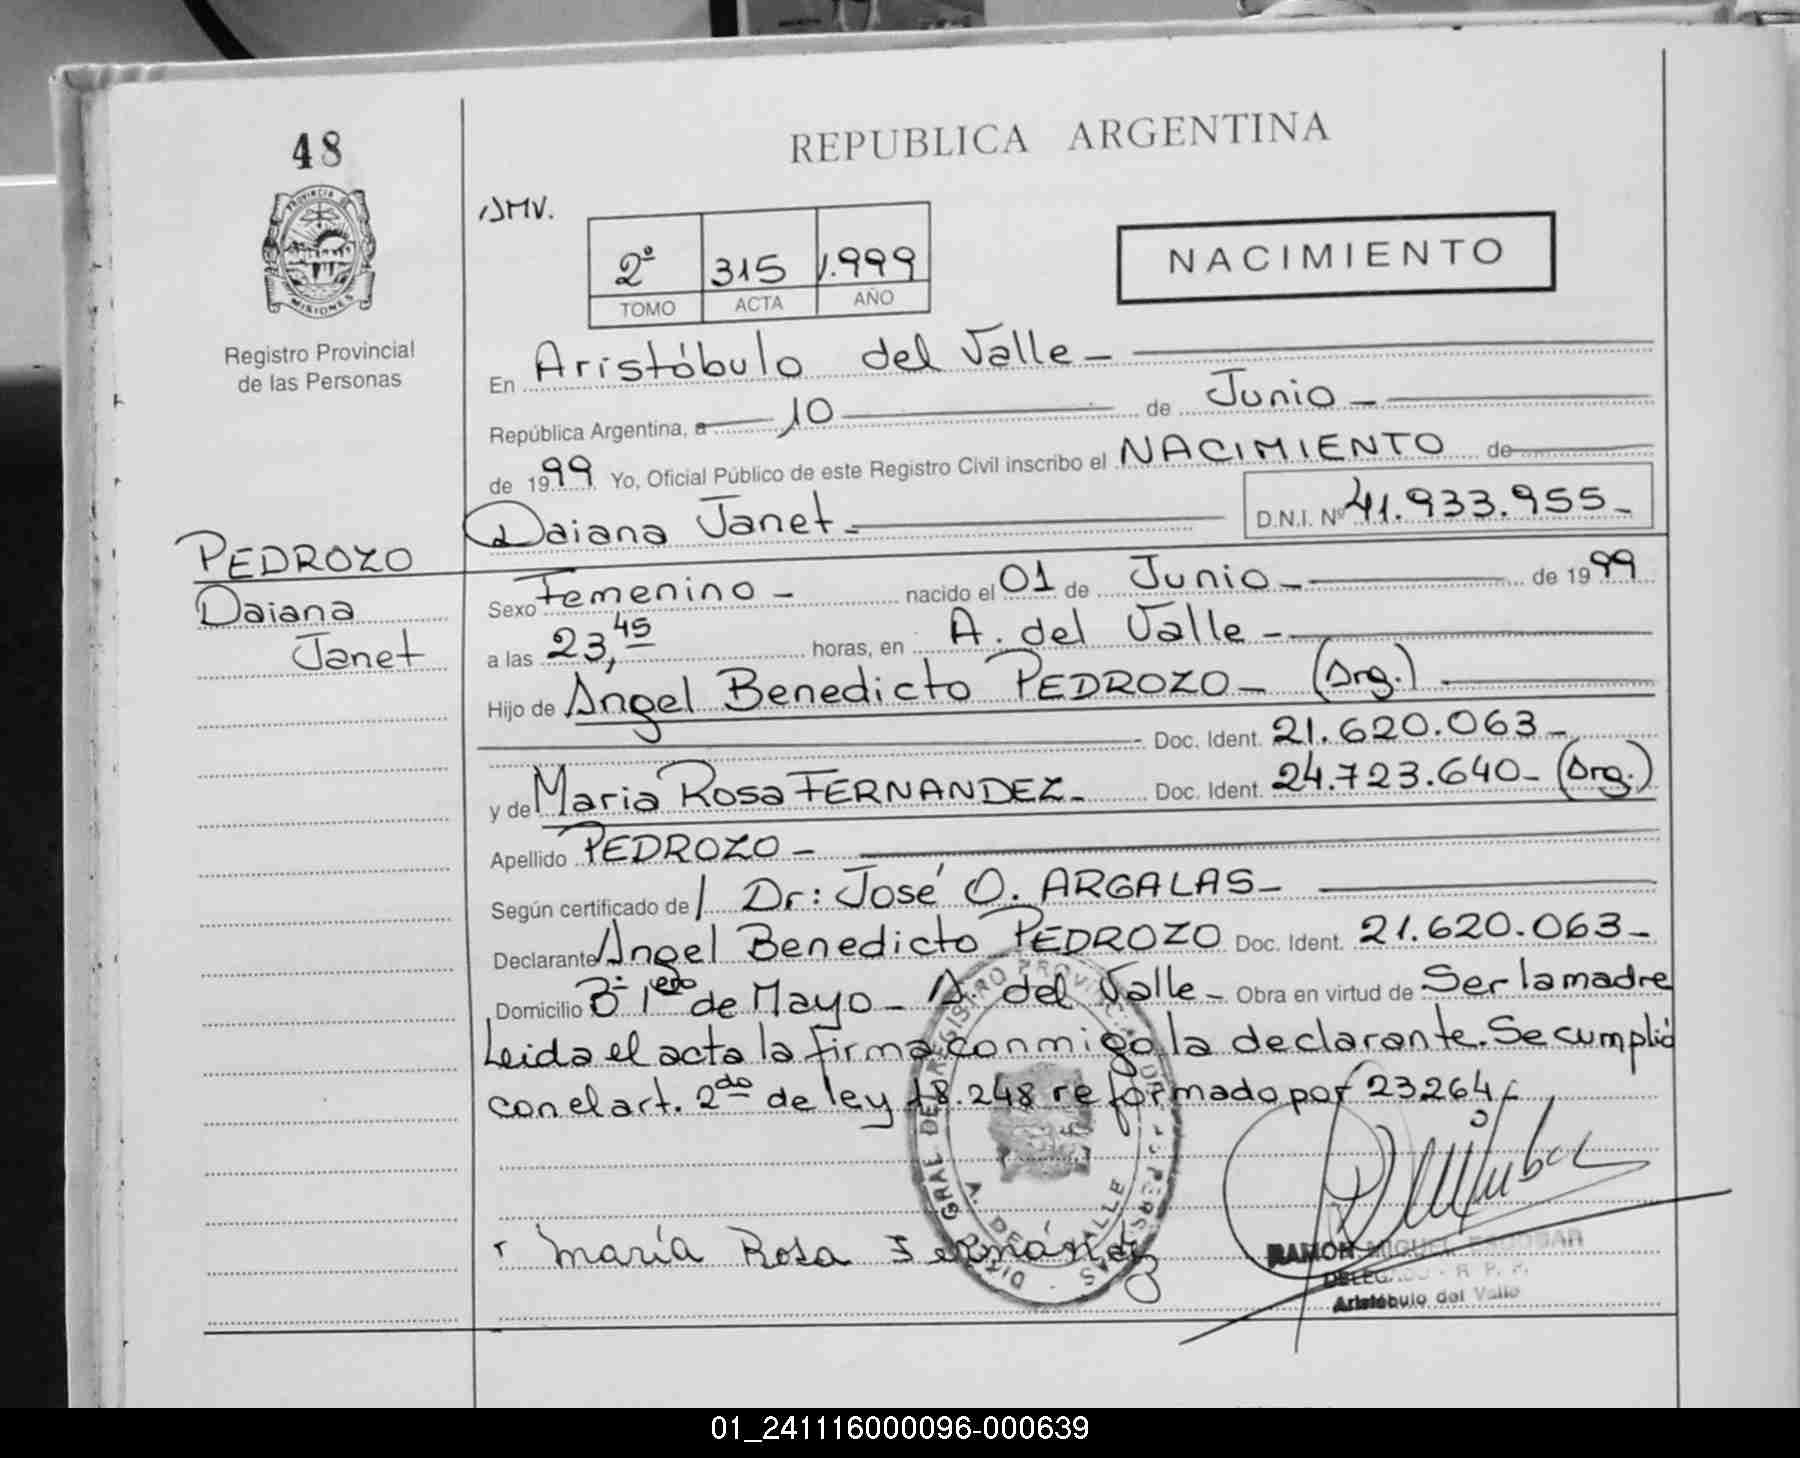 48
PROVINCIA DE
MISIONES
Registro Provincial
de las Personas
REPUBLICA ARGENTINA
JMV.
2º 315 1.999
TOMO ACTA AÑO
NACIMIENTO
En Aristóbulo del Valle –
República Argentina, a 10 de Junio –
de 1999 Yo, Oficial Público de este Registro Civil inscribo el NACIMIENTO de
Daiana Janet – D.N.I. Nº 41.933.955 –
PEDROZO
Daiana
Janet
Sexo Femenino – nacido el 01 de Junio – de 1999
a las 23,45 horas, en A. del Valle –
Hijo de Angel Benedicto PEDROZO – (Arg.)
Doc. Ident. 21.620.063 –
y de Maria Rosa FERNANDEZ – Doc. Ident. 24.723.640 – (Arg.)
Apellido PEDROZO –
Según certificado de / Dr: José O. ARGALAS –
Declarante Angel Benedicto PEDROZO Doc. Ident. 21.620.063 –
Domicilio Bº 1ero de Mayo – A. del Valle – Obra en virtud de Ser la madre
Leida el acta la firma conmigo la declarante. Se cumplió
con el art. 2do de ley 18.248 reformado por 23264 –
María Rosa Fernández
RAMON MIGUEL ESCOBAR
DELEGADO - R. P. P.
Aristóbulo del Valle
01_241116000096-000639